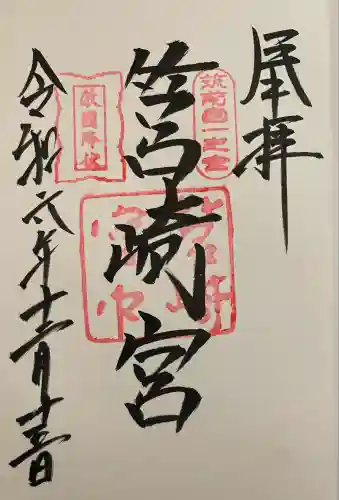 奉拝
筑前國一之宮
筥崎宮
敵國降伏
筥崎宮印
令和六年十二月十三日